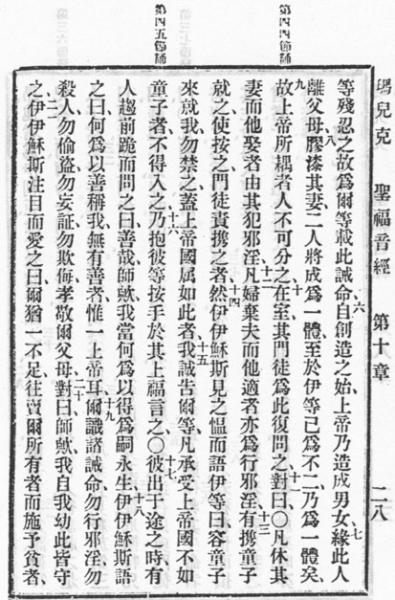 瑪兒克 聖福音經 第十章 二八
等殘忍之故、爲爾等載此誡命、六自創造之始、上帝乃造成男女、七緣此人
離父母、膠漆其妻、八二人將成爲一體、至於伊等已爲不二、乃爲一體矣、
九故上帝所耦者、人不可分之、十在室其門徒爲此復問之、十一對曰○凡休其
妻而他娶者、由其犯邪淫、十二凡婦棄夫而他適者、亦爲行邪淫、十三有攜童子
就之、使按之、門徒責攜之者、十四然伊伊穌斯見之慍、而語伊等曰、容童子
來就我、勿禁之、蓋上帝國屬如此者、十五我誠告爾等、凡承受上帝國不如
童子者、不得入之、十六乃抱彼等、按手於其上福言之、○十七彼出于途之時、有
人趨前跪而問之曰、善哉師歟、我當何爲、以得爲嗣永生、十八伊伊穌斯語
之曰、何爲以善稱我、無有善者、惟一上帝耳、十九爾識諸誡命、勿行邪淫、勿
殺人、勿偷盜、勿妄証、勿欺侮、孝敬爾父母、二十對曰師歟、我自我幼此皆守
之、二一伊伊穌斯注目而愛之曰、爾猶一不足、往賣爾所有者、而施予貧者、
第四四節誦
第四五節誦